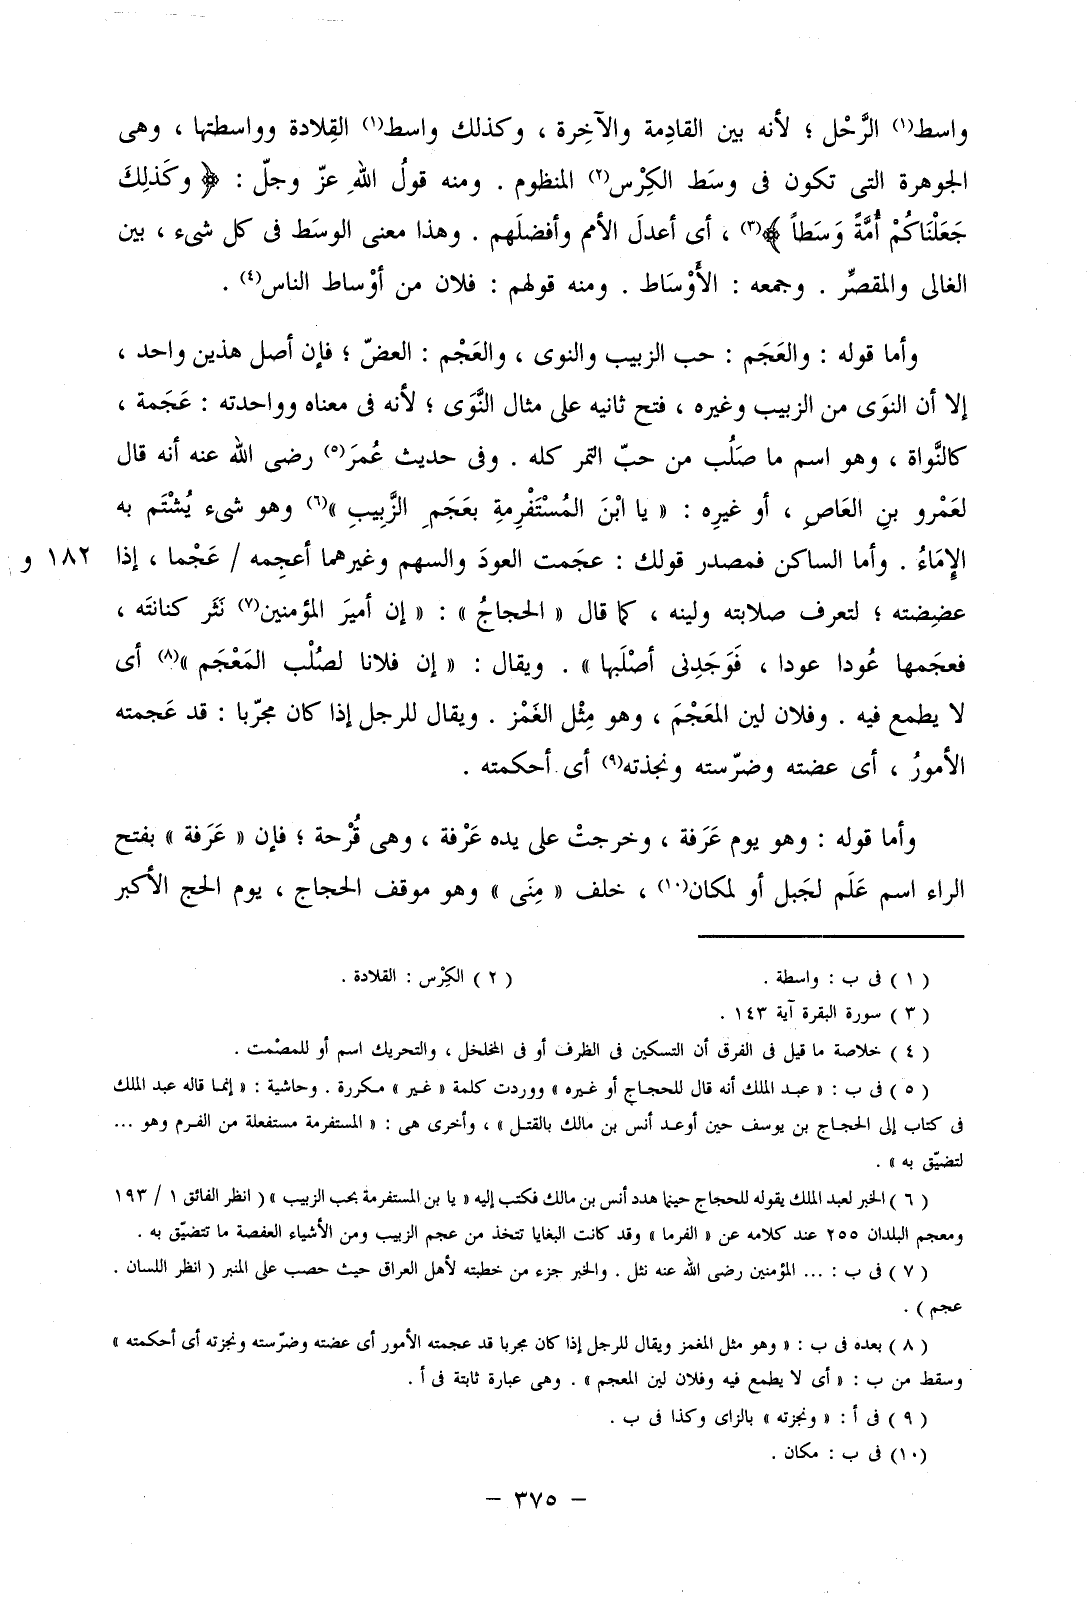 واسط(١) الرَّحْل ؛ لأنه بين القادِمة والآخِرة ، وكذلك واسط(١) القِلادة وواسطتها ، وهى
الجوهرة التى تكون فى وسَط الكِرْس(٢) المنظوم . ومنه قولُ اللهِ عزّ وجلّ : ﴿ وكَذلِكَ
جَعَلْنَاكُمْ أُمَّةً وَسَطاً ﴾(٣) ، أى أعدلَ الأمم وأفضلَهم . وهذا معنى الوسَط فى كل شىء ، بين
الغالى والمقصِّر . وجمعه : الأَوْسَاط . ومنه قولهم : فلان من أوْساط الناس(٤) .
وأما قوله : والعَجَم : حب الزبيب والنوى ، والعَجْم : العضّ ؛ فإن أصل هذين واحد ،
إلا أن النوَى من الزبيب وغيره ، فتح ثانيه على مثال النَّوَى ؛ لأنه فى معناه وواحدته : عَجَمة ،
كالنَّواة ، وهو اسم ما صَلُب من حبّ التمر كله . وفى حديث عُمرَ(٥) رضى الله عنه أنه قال
لعَمْرو بنِ العَاصِ ، أو غيرِه : « يا ابْنَ المُسْتَفْرِمةِ بعَجَمِ الزَّبِيبِ »(٦) وهو شىء يُشْتَم به
الإِمَاءُ . وأما الساكن فمصدر قولك : عجَمت العودَ والسهم وغيرهما أعجِمه / عَجْما ، إذا ١٨٢ و
عضِضته ؛ لتعرف صلابته ولينه ، كما قال « الحجاجُ » : « إن أميرَ المؤمنين(٧) نَثَر كنانتَه ،
فعجَمها عُودا عودا ، فَوَجَدنى أصْلَبها » . ويقال : « إن فلانا لصُلْب المَعْجَم »(٨) أى
لا يطمع فيه . وفلان لين المعَجْمَ ، وهو مِثْل الغَمْز . ويقال للرجل إذا كان مجرّبا : قد عَجمته
الأمورُ ، أى عضته وضرّسته ونجذته(٩) أى أحكمته .
وأما قوله : وهو يوم عَرَفة ، وخرجتْ على يده عَرْفة ، وهى قُرْحة ؛ فإن « عَرَفة » بفتح
الراء اسم عَلَم لجَبل أو لمكان(١٠) ، خلف « مِنَى » وهو موقف الحجاج ، يوم الحج الأكبر
( ١ ) فى ب : واسطة . ( ٢ ) الكِرْس : القلادة .
( ٣ ) سورة البقرة آية ١٤٣ .
( ٤ ) خلاصة ما قيل فى الفرق أن التسكين فى الظرف أو فى المخلخل ، والتحريك اسم أو للمصْمت .
( ٥ ) فى ب : « عبد الملك أنه قال للحجاج أو غيره » ووردت كلمة « غير » مكررة . وحاشية : « إنما قاله عبد الملك
فى كتاب إلى الحجاج بن يوسف حين أوعد أنس بن مالك بالقتل » ، وأخرى هى : « المستفرمة مستفعلة من الفرم وهو ...
لتضيّق به » .
( ٦ ) الخبر لعبد الملك يقوله للحجاج حينما هدد أنس بن مالك فكتب إليه « يا بن المستفرمة بحب الزبيب » ( انظر الفائق ١ / ١٩٣
ومعجم البلدان ٢٥٥ عند كلامه عن « الفرما » وقد كانت البغايا تتخذ من عجم الزبيب ومن الأشياء العفصة ما تتضيّق به .
( ٧ ) فى ب : ... المؤمنين رضى الله عنه نثل . والخبر جزء من خطبته لأهل العراق حيث حصب على المنبر ( انظر اللسان .
عجم ) .
( ٨ ) بعده فى ب : « وهو مثل المغمز ويقال للرجل إذا كان مجربا قد عجمته الأمور أى عضته وضرّسته ونجزته أى أحكمته »
وسقط من ب : « أى لا يطمع فيه وفلان لين المعجم » . وهى عبارة ثابتة فى أ .
( ٩ ) فى أ : « ونجزته » بالزاى وكذا فى ب .
(١٠) فى ب : مكان .
– ٣٧٥ –